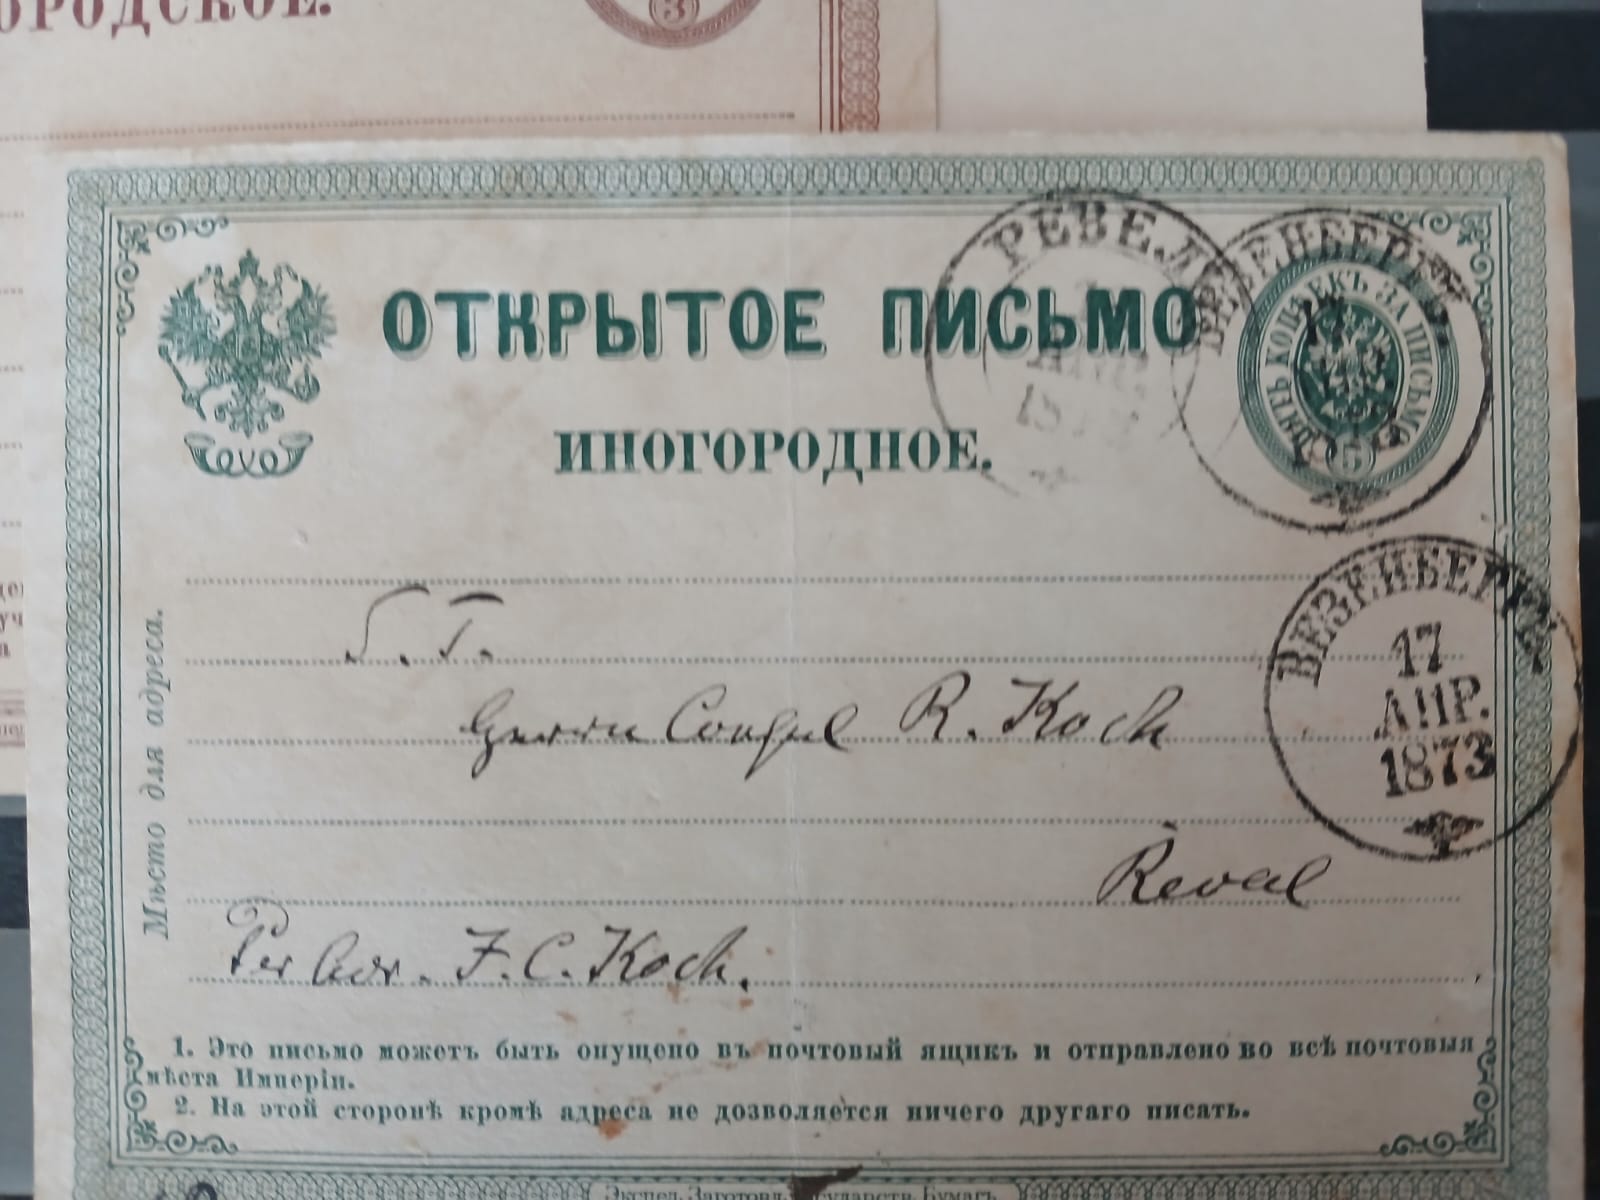 ОРОДСКОЕ.
3
ОТКРЫТОЕ ПИСЬМО
ИНОГОРОДНОЕ.
РЕВЕЛ
ВЕЗЕНБЕРГЪ
ПЯТЬ КОПѢЕКЪ ЗА ПИСЬМО
5
ВЕЗЕНБЕРГЪ
17
АПР.
1873
Мѣсто для адреса.
S. T.
Herrn Consul R. Koch
Reval
Per Adr. F. C. Koch.
1. Это письмо можетъ быть опущено въ почтовый ящикъ и отправлено во всѣ почтовыя
мѣста Имперіи.
2. На этой сторонѣ кромѣ адреса не дозволяется ничего другаго писать.
Экспед. Заготовл. Государств. Бумагъ.